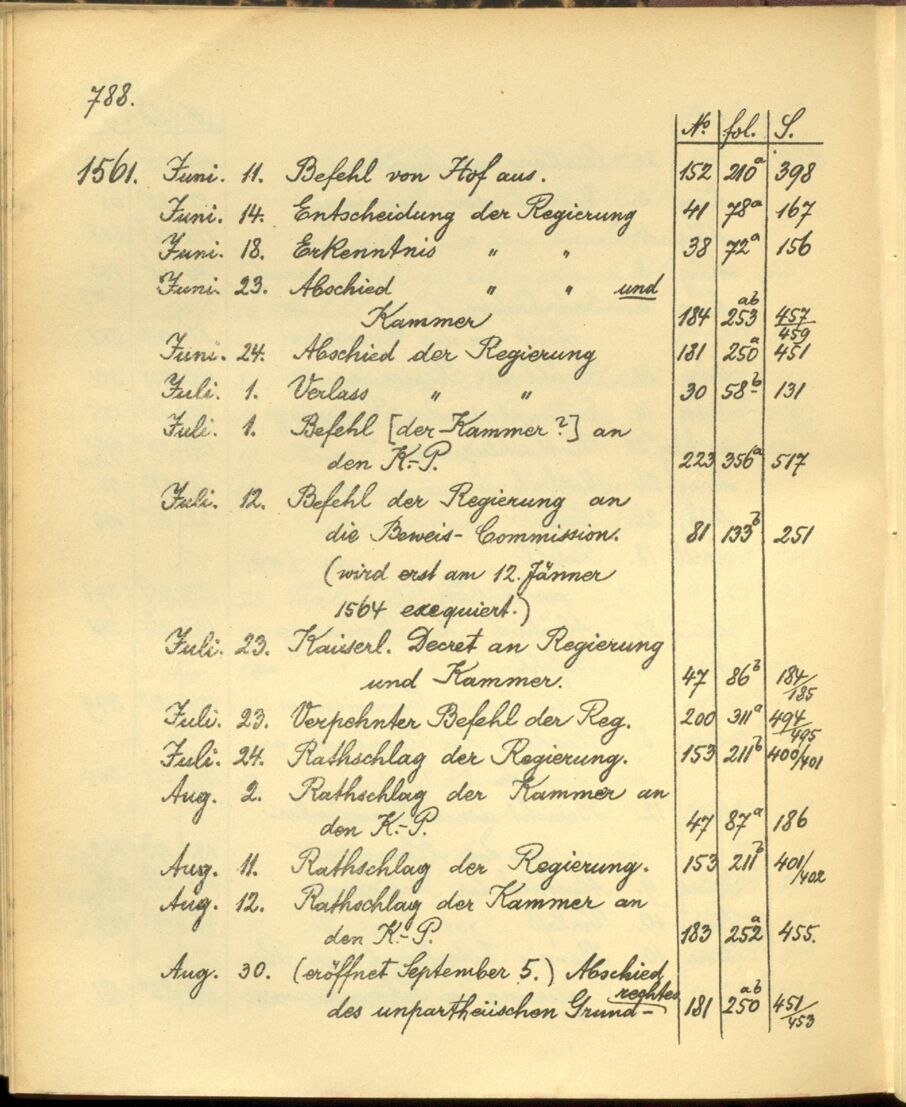 788.
Nº fol. S.
1561. Juni. 11. Befehl von Hof aus. 152 210a 398
Juni. 14. Entscheidung der Regierung 41 78a 167
Juni. 18. Erkenntnis " " 38 72a 156
Juni. 23. Abschied " " und
Kammer 184 253ab 457/459
Juni. 24. Abschied der Regierung 181 250a 451
Juli. 1. Verlass " " 30 58b 131
Juli. 1. Befehl [der Kammer?] an
den K.-P. 223 356a 517
Juli. 12. Befehl der Regierung an
die Beweis-Commission. 81 133b 251
(wird erst am 12. Jänner
1564 exequiert.)
Juli. 23. Kaiserl. Decret an Regierung
und Kammer. 47 86b 184/185
Juli. 23. Verpehnter Befehl der Reg. 200 311a 494/495
Juli. 24. Rathschlag der Regierung. 153 211b 400/401
Aug. 2. Rathschlag der Kammer an
den K.-P. 47 87a 186
Aug. 11. Rathschlag der Regierung. 153 211b 401/402
Aug. 12. Rathschlag der Kammer an
den K.-P. 183 252a 455.
Aug. 30. (eröffnet September 5.) Abschied
des unpartheiischen Grund-rechtes 181 250ab 451/453